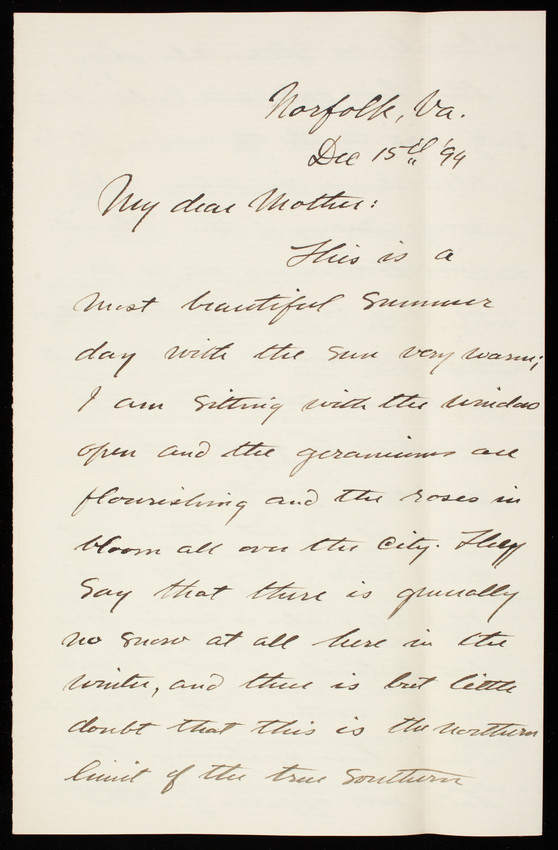 Norfolk, Va.
Dec 15th '94
My dear Mother:
This is a
most beautiful summer
day with the sun very warm;
I am sitting with the window
open and the geraniums are
flourishing and the roses in
bloom all over the city. They
say that there is generally
no snow at all here in the
winter, and there is but little
doubt that this is the northern
limit of the true Southern